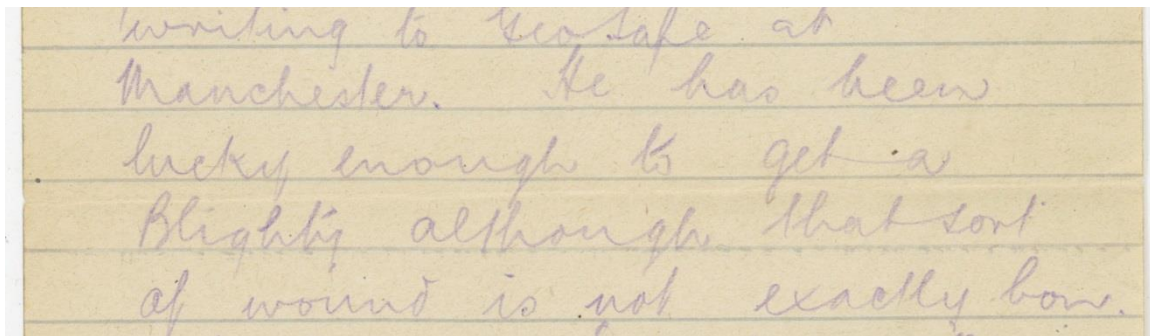 writing to Geo Tape at
Manchester. He has been
lucky enough to get a
Blighty although that sort
of wound is not exactly bon.